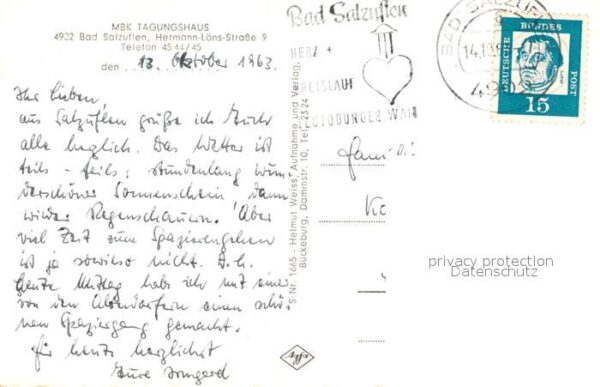 MBK TAGUNGSHAUS
4902 Bad Salzuflen, Hermann-Löns-Straße 9
Telefon 45 44/45
den 13. Oktober 1963.
Ihr Lieben,
aus Salzuflen grüße ich Euch
alle herzlich. Das Wetter ist
teils - teils; stundenlang wun
derschöner Sonnenschein dann
wieder Regenschauern. Aber
viel Zeit zum Spazierengehen
ist ja sowieso nicht. D.h.
heute Mittag hab ich mit einer
von den Altendorfern einen schö-
nen Spaziergang gemacht.
Für heute herzlichst
Eure Irmgard
S Nr. 1665 - Helmut Weiss, Aufnahme und Verlag,
Bückeburg, Dammstr. 10, Tel. 23 24
Agfa
Bad Salzuflen
HERZ +
KREISLAUF
TEUTOBURGER WALD
BAD SALZUFLEN
14.10
4902
DEUTSCHE BUNDESPOST
15
Fami
privacy protection
Datenschutz